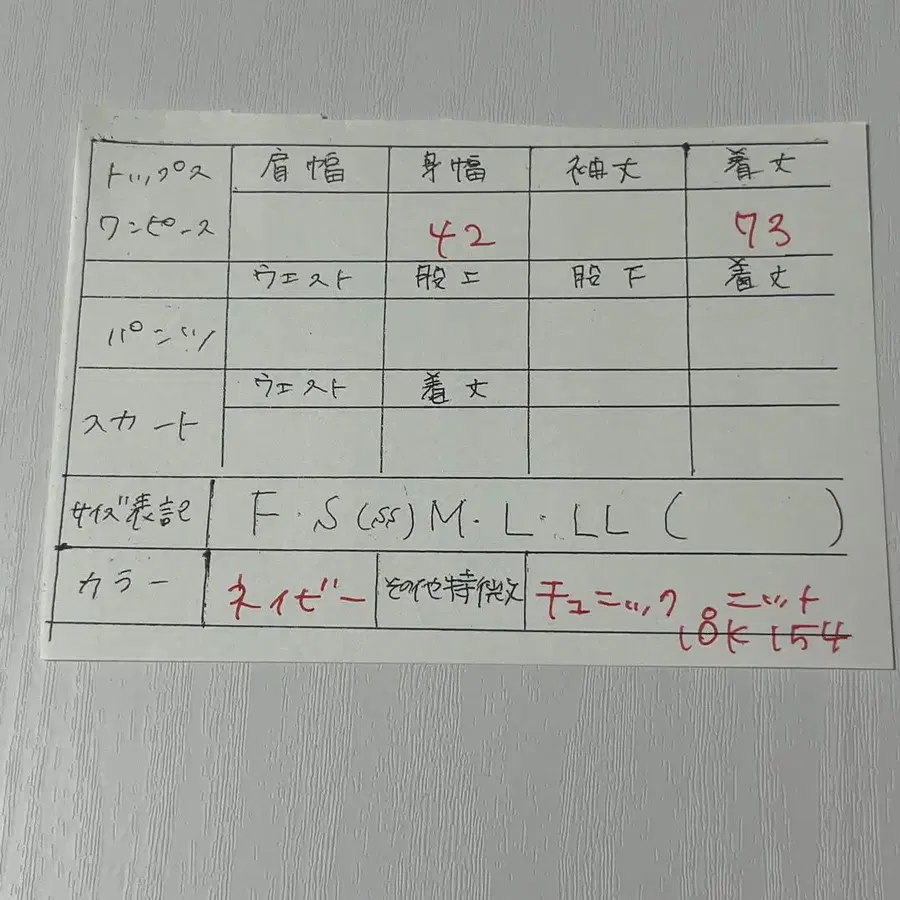 トップス 肩幅 身幅 袖丈 着丈
ワンピース 42 73
ウエスト 股上 股下 着丈
パンツ
ウエスト 着丈
スカート
サイズ表記 F・S(SS)M・L・LL( )
カラー ネイビー その他特徴文 チュニック ニット
154